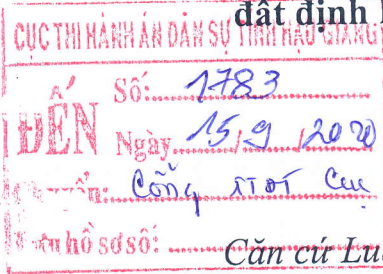 đất định
CỤC THI HÀNH ÁN DÂN SỰ TỈNH HẬU GIANG
ĐẾN
Số: 1783
Ngày 15/9/2020
Cổng TTĐT Cục
hồ sơ số:
Căn cứ Lu